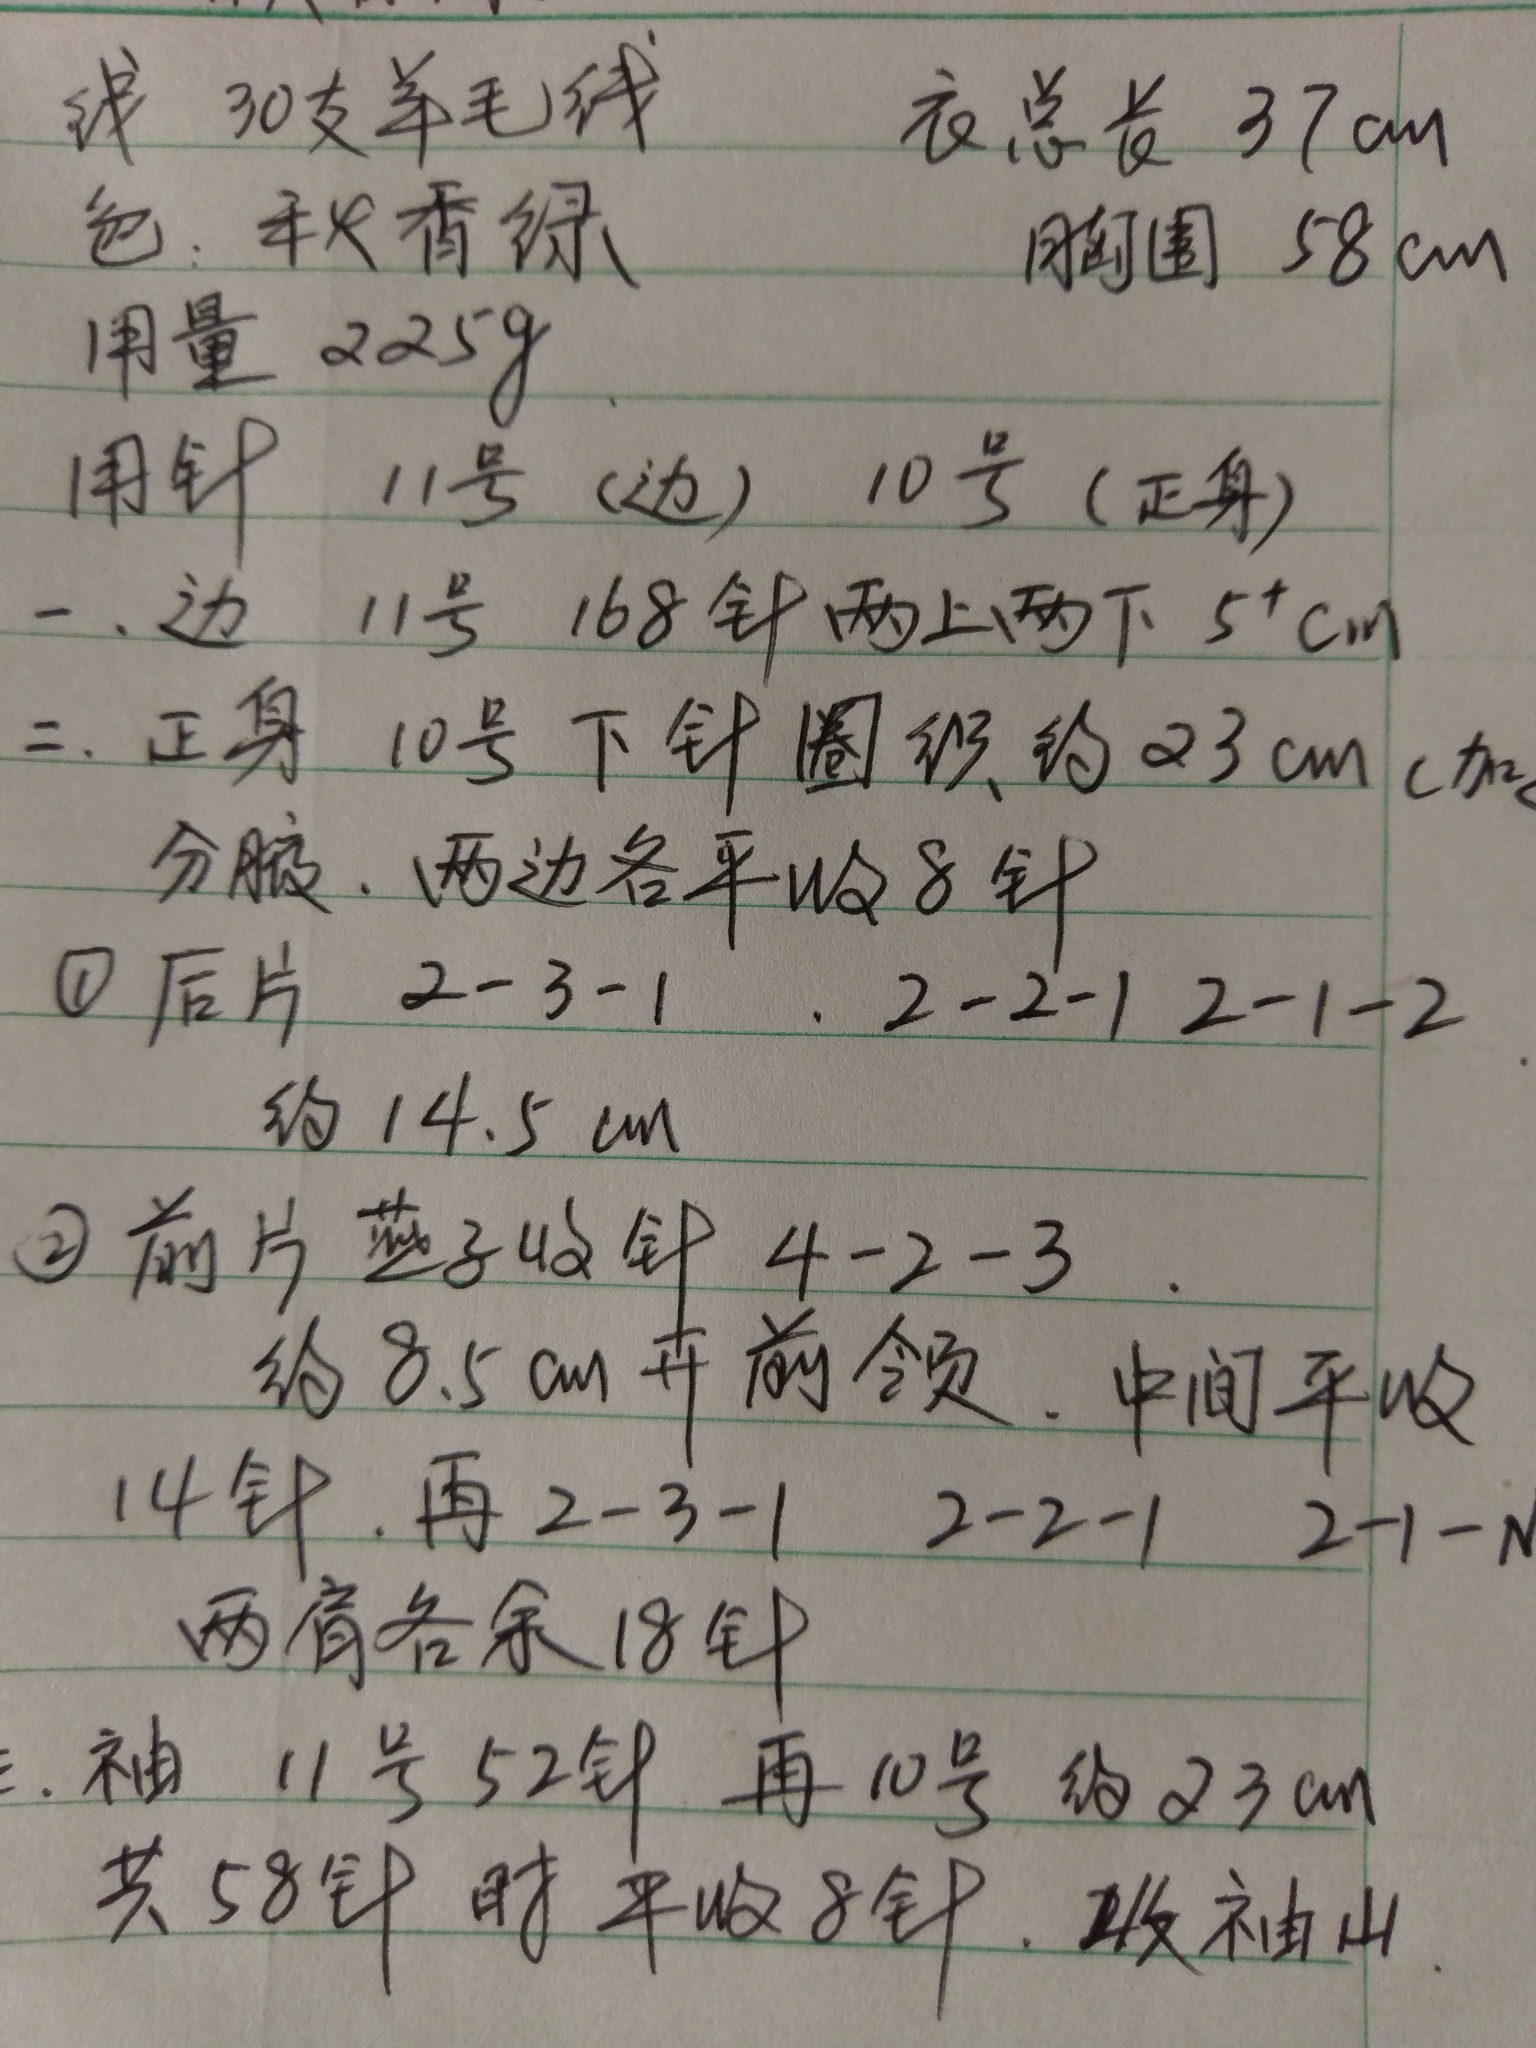 线 30支羊毛线 衣总长 37cm
色: 秋香绿 胸围 58cm
用量 225g
用针 11号(边) 10号(正身)
一.边 11号 168针两上两下 5⁺cm
二.正身 10号 下针圈织 约23cm (加
分腋.两边各平收8针
①后片 2-3-1 . 2-2-1 2-1-2
约14.5cm
②前片 燕子收针 4-2-3.
约8.5cm开前领.中间平收
14针.再2-3-1 2-2-1 2-1-N
两肩各余18针
三.袖 11号52针 再10号 约23cm
共58针时平收8针.收袖山.